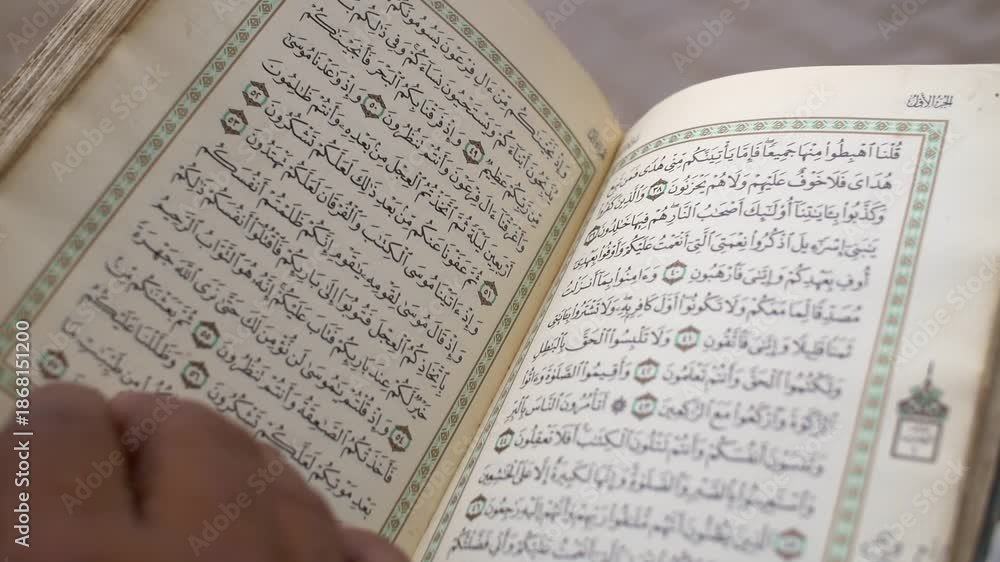 الجزء الأول
قُلْنَا اهْبِطُوا مِنْهَا جَمِيعًا فَإِمَّا يَأْتِيَنَّكُم مِّنِّي هُدًى فَمَن تَبِعَ
هُدَايَ فَلَا خَوْفٌ عَلَيْهِمْ وَلَا هُمْ يَحْزَنُونَ ٣٨ وَالَّذِينَ كَفَرُوا
وَكَذَّبُوا بِآيَاتِنَا أُولَٰئِكَ أَصْحَابُ النَّارِ هُمْ فِيهَا خَالِدُونَ ٣٩
يَا بَنِي إِسْرَائِيلَ اذْكُرُوا نِعْمَتِيَ الَّتِي أَنْعَمْتُ عَلَيْكُمْ وَأَوْفُوا بِعَهْدِي
أُوفِ بِعَهْدِكُمْ وَإِيَّايَ فَارْهَبُونِ ٤٠ وَآمِنُوا بِمَا أَنزَلْتُ
مُصَدِّقًا لِّمَا مَعَكُمْ وَلَا تَكُونُوا أَوَّلَ كَافِرٍ بِهِ وَلَا تَشْتَرُوا بِآيَاتِي
ثَمَنًا قَلِيلًا وَإِيَّايَ فَاتَّقُونِ ٤١ وَلَا تَلْبِسُوا الْحَقَّ بِالْبَاطِلِ
وَتَكْتُمُوا الْحَقَّ وَأَنتُمْ تَعْلَمُونَ ٤٢ وَأَقِيمُوا الصَّلَاةَ وَآتُوا
الزَّكَاةَ وَارْكَعُوا مَعَ الرَّاكِعِينَ ٤٣ ۞ أَتَأْمُرُونَ النَّاسَ بِالْبِرِّ
وَتَنسَوْنَ أَنفُسَكُمْ وَأَنتُمْ تَتْلُونَ الْكِتَابَ أَفَلَا تَعْقِلُونَ ٤٤
وَاسْتَعِينُوا بِالصَّبْرِ وَالصَّلَاةِ وَإِنَّهَا لَكَبِيرَةٌ إِلَّا عَلَى الْخَاشِعِينَ
٤٥ الَّذِينَ يَظُنُّونَ أَنَّهُم مُّلَاقُو رَبِّهِمْ وَأَنَّهُمْ إِلَيْهِ رَاجِعُونَ ٤٦
الَّتِي أَنْعَمْتُ عَلَيْكُمْ وَأَنِّي فَضَّلْتُكُمْ
يَسُومُونَكُمْ
يُذَبِّحُونَ أَبْنَاءَكُمْ وَيَسْتَحْيُونَ نِسَاءَكُمْ وَفِي ذَٰلِكُم
مِّن رَّبِّكُمْ عَظِيمٌ ٤٩ وَإِذْ فَرَقْنَا بِكُمُ الْبَحْرَ فَأَنجَيْنَاكُمْ
وَأَغْرَقْنَا آلَ فِرْعَوْنَ وَأَنتُمْ تَنظُرُونَ ٥٠ وَإِذْ وَاعَدْنَا مُوسَىٰ
أَرْبَعِينَ لَيْلَةً ثُمَّ اتَّخَذْتُمُ الْعِجْلَ مِن بَعْدِهِ وَأَنتُمْ ظَالِمُونَ
٥١ ثُمَّ عَفَوْنَا عَنكُم مِّن بَعْدِ ذَٰلِكَ لَعَلَّكُمْ تَشْكُرُونَ ٥٢
وَإِذْ آتَيْنَا مُوسَى الْكِتَابَ وَالْفُرْقَانَ لَعَلَّكُمْ تَهْتَدُونَ ٥٣
وَإِذْ قَالَ مُوسَىٰ لِقَوْمِهِ يَا قَوْمِ إِنَّكُمْ ظَلَمْتُمْ أَنفُسَكُم
بِاتِّخَاذِكُمُ الْعِجْلَ فَتُوبُوا إِلَىٰ بَارِئِكُمْ فَاقْتُلُوا أَنفُسَكُمْ ذَٰلِكُمْ
خَيْرٌ لَّكُمْ عِندَ بَارِئِكُمْ فَتَابَ عَلَيْكُمْ إِنَّهُ هُوَ التَّوَّابُ الرَّحِيمُ
٥٤ وَإِذْ قُلْتُمْ يَا مُوسَىٰ لَن نُّؤْمِنَ لَكَ حَتَّىٰ نَرَى اللَّهَ جَهْرَةً
فَأَخَذَتْكُمُ الصَّاعِقَةُ وَأَنتُمْ تَنظُرُونَ ٥٥ ثُمَّ بَعَثْنَاكُم مِّن
بَعْدِ مَوْتِكُمْ لَعَلَّكُمْ تَشْكُرُونَ ٥٦ وَظَلَّلْنَا عَلَيْكُمُ
مِن طَيِّبَاتِ مَا
Adobe Stock | #1868151200